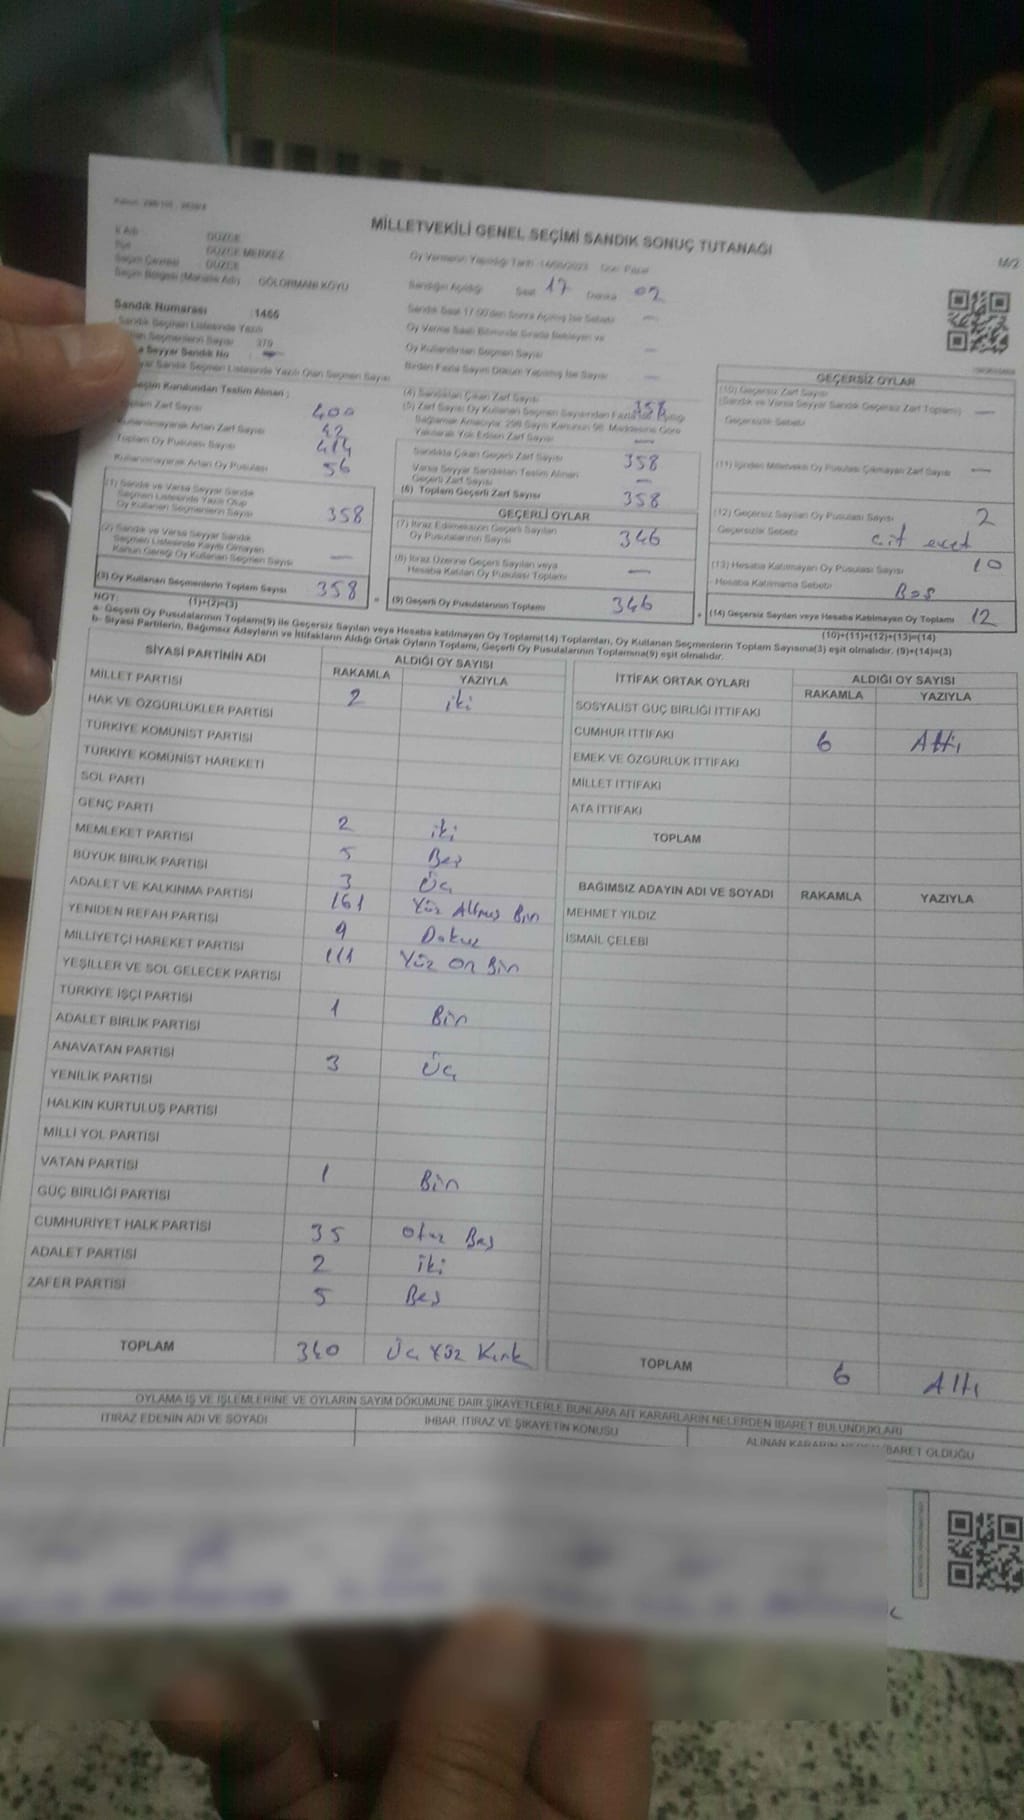 MİLLETVEKİLİ GENEL SEÇİMİ SANDIK SONUÇ TUTANAĞI
M/2
İl Adı DÜZCE
İlçe DÜZCE MERKEZ
Seçim Çevresi DÜZCE
Seçim Bölgesi (Mahalle Adı) GÖLORMANI KÖYÜ
Oy Vermenin Yapıldığı Tarih: 14/05/2023 Gün: Pazar
Sandığın Açıldığı Saat 17 Dakika 02
Sandık Saat 17:00'den Sonra Açılmış İse Sebebi —
Oy Verme Saati Bitiminde Sırada Bekleyen ve
Oy Kullandırılan Seçmen Sayısı —
Birden Fazla Sayım Döküm Yapılmış İse Sayısı —
Sandık Numarası :1466
Sandık Seçmen Listesinde Yazılı
Seçmenlerin Sayısı 379
Seyyar Sandık No :
Sandık Seçmen Listesinde Yazılı Olan Seçmen Sayısı
Seçim Kurulundan Teslim Alınan ;
Toplam Zarf Sayısı 400
Kullanılmayarak Artan Zarf Sayısı 42
Toplam Oy Pusulası Sayısı 414
Kullanılmayarak Artan Oy Pusulası 56
(1) Sandık ve Varsa Seyyar Sandık
Seçmen Listesinde Yazılı Olup
Oy Kullanan Seçmenlerin Sayısı 358
(2) Sandık ve Varsa Seyyar Sandık
Seçmen Listesinde Kayıtlı Olmayan
Kanun Gereği Oy Kullanan Seçmen Sayısı —
(3) Oy Kullanan Seçmenlerin Toplam Sayısı 358
(1)+(2)=(3)
(4) Sandıktan Çıkan Zarf Sayısı 358
(5) Zarf Sayısı Oy Kullanan Seçmen Sayısından Fazla İse, Eşitliği
Sağlamak Amacıyla, 298 Sayılı Kanunun 98. Maddesine Göre
Yakılarak Yok Edilen Zarf Sayısı —
Sandıkta Çıkan Geçerli Zarf Sayısı 358
Varsa Seyyar Sandıktan Teslim Alınan
Geçerli Zarf Sayısı —
(6) Toplam Geçerli Zarf Sayısı 358
GEÇERLİ OYLAR
(7) İtiraz Edilmeksizin Geçerli Sayılan
Oy Pusulalarının Sayısı 346
(8) İtiraz Üzerine Geçerli Sayılan veya
Hesaba Katılan Oy Pusulası Toplamı —
= (9) Geçerli Oy Pusulalarının Toplamı 346
GEÇERSİZ OYLAR
(10) Geçersiz Zarf Sayısı
(Sandık ve Varsa Seyyar Sandık Geçersiz Zarf Toplamı) —
Geçersizlik Sebebi
(11) İçinden Milletvekili Oy Pusulası Çıkmayan Zarf Sayısı —
(12) Geçersiz Sayılan Oy Pusulası Sayısı 2
Geçersizlik Sebebi
(13) Hesaba Katılmayan Oy Pusulası Sayısı 10
Hesaba Katılmama Sebebi Boş
+ (14) Geçersiz Sayılan veya Hesaba Katılmayan Oy Toplamı 12
(10)+(11)+(12)+(13)=(14)
NOT:
a- Geçerli Oy Pusulalarının Toplamı(9) ile Geçersiz Sayılan veya Hesaba katılmayan Oy Toplamı(14) Toplamları, Oy Kullanan Seçmenlerin Toplam Sayısına(3) eşit olmalıdır. (9)+(14)=(3)
b- Siyasi Partilerin, Bağımsız Adayların ve İttifakların Aldığı Ortak Oyların Toplamı, Geçerli Oy Pusulalarının Toplamına(9) eşit olmalıdır.
SİYASİ PARTİNİN ADI ALDIĞI OY SAYISI
RAKAMLA YAZIYLA
MİLLET PARTİSİ 2 iki
HAK VE ÖZGÜRLÜKLER PARTİSİ
TÜRKİYE KOMÜNİST PARTİSİ
TÜRKİYE KOMÜNİST HAREKETİ
SOL PARTİ
GENÇ PARTİ 2 iki
MEMLEKET PARTİSİ 5 Beş
BÜYÜK BİRLİK PARTİSİ 3 Üç
ADALET VE KALKINMA PARTİSİ 161 Yüz Altmış Bin
YENİDEN REFAH PARTİSİ 9 Dokuz
MİLLİYETÇİ HAREKET PARTİSİ 111 Yüz On Bin
YEŞİLLER VE SOL GELECEK PARTİSİ
TÜRKİYE İŞÇİ PARTİSİ 1 Bin
ADALET BİRLİK PARTİSİ
ANAVATAN PARTİSİ 3 Üç
YENİLİK PARTİSİ
HALKIN KURTULUŞ PARTİSİ
MİLLİ YOL PARTİSİ
VATAN PARTİSİ 1 Bin
GÜÇ BİRLİĞİ PARTİSİ
CUMHURİYET HALK PARTİSİ 35 Otuz Beş
ADALET PARTİSİ 2 iki
ZAFER PARTİSİ 5 Beş
TOPLAM 340 Üç Yüz Kırk
İTTİFAK ORTAK OYLARI ALDIĞI OY SAYISI
RAKAMLA YAZIYLA
SOSYALİST GÜÇ BİRLİĞİ İTTİFAKI
CUMHUR İTTİFAKI 6 Altı
EMEK VE ÖZGÜRLÜK İTTİFAKI
MİLLET İTTİFAKI
ATA İTTİFAKI
TOPLAM
BAĞIMSIZ ADAYIN ADI VE SOYADI RAKAMLA YAZIYLA
MEHMET YILDIZ
İSMAİL ÇELEBİ
TOPLAM 6 Altı
OYLAMA İŞ VE İŞLEMLERİNE VE OYLARIN SAYIM DÖKÜMÜNE DAİR ŞİKAYETLERLE BUNLARA AİT KARARLARIN NELERDEN İBARET BULUNDUKLARI
İTİRAZ EDENİN ADI VE SOYADI İHBAR, İTİRAZ VE ŞİKAYETİN KONUSU ALINAN KARARIN NEDEN İBARET OLDUĞU